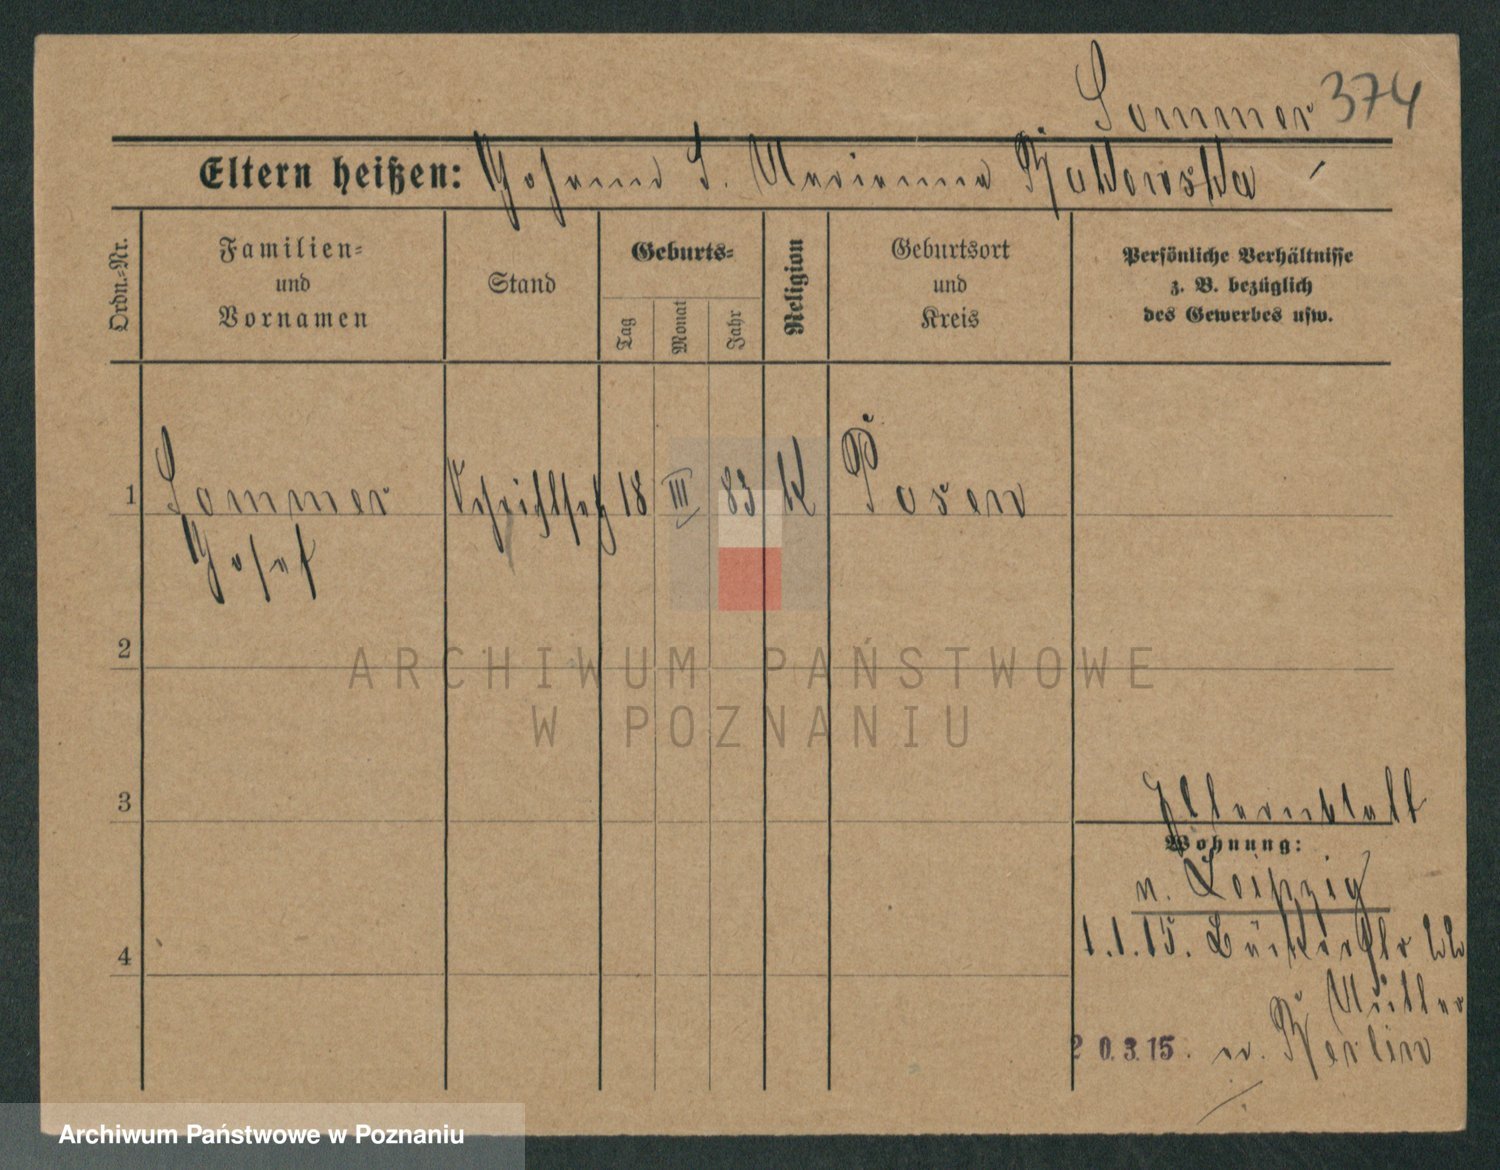 Sommer 374
Eltern heißen: Johann S. Marianna Rakowska
Ordn.-Nr.
Familien-
und
Vornamen
Stand
Geburts-
Tag
Monat
Jahr
Religion
Geburtsort
und
Kreis
Persönliche Verhältnisse
z. B. bezüglich
des Gewerbes usw.
1 Sommer Schriftsetz 18 III 83 K Posen
Josef
2
ARCHIWUM PAŃSTWOWE
W POZNANIU
3
Elternblatt
Wohnung:
n. Leipzig
1.1.15. Bäckerstr 22
4
Mutter
20.3.15. n. Berlin
Archiwum Państwowe w Poznaniu